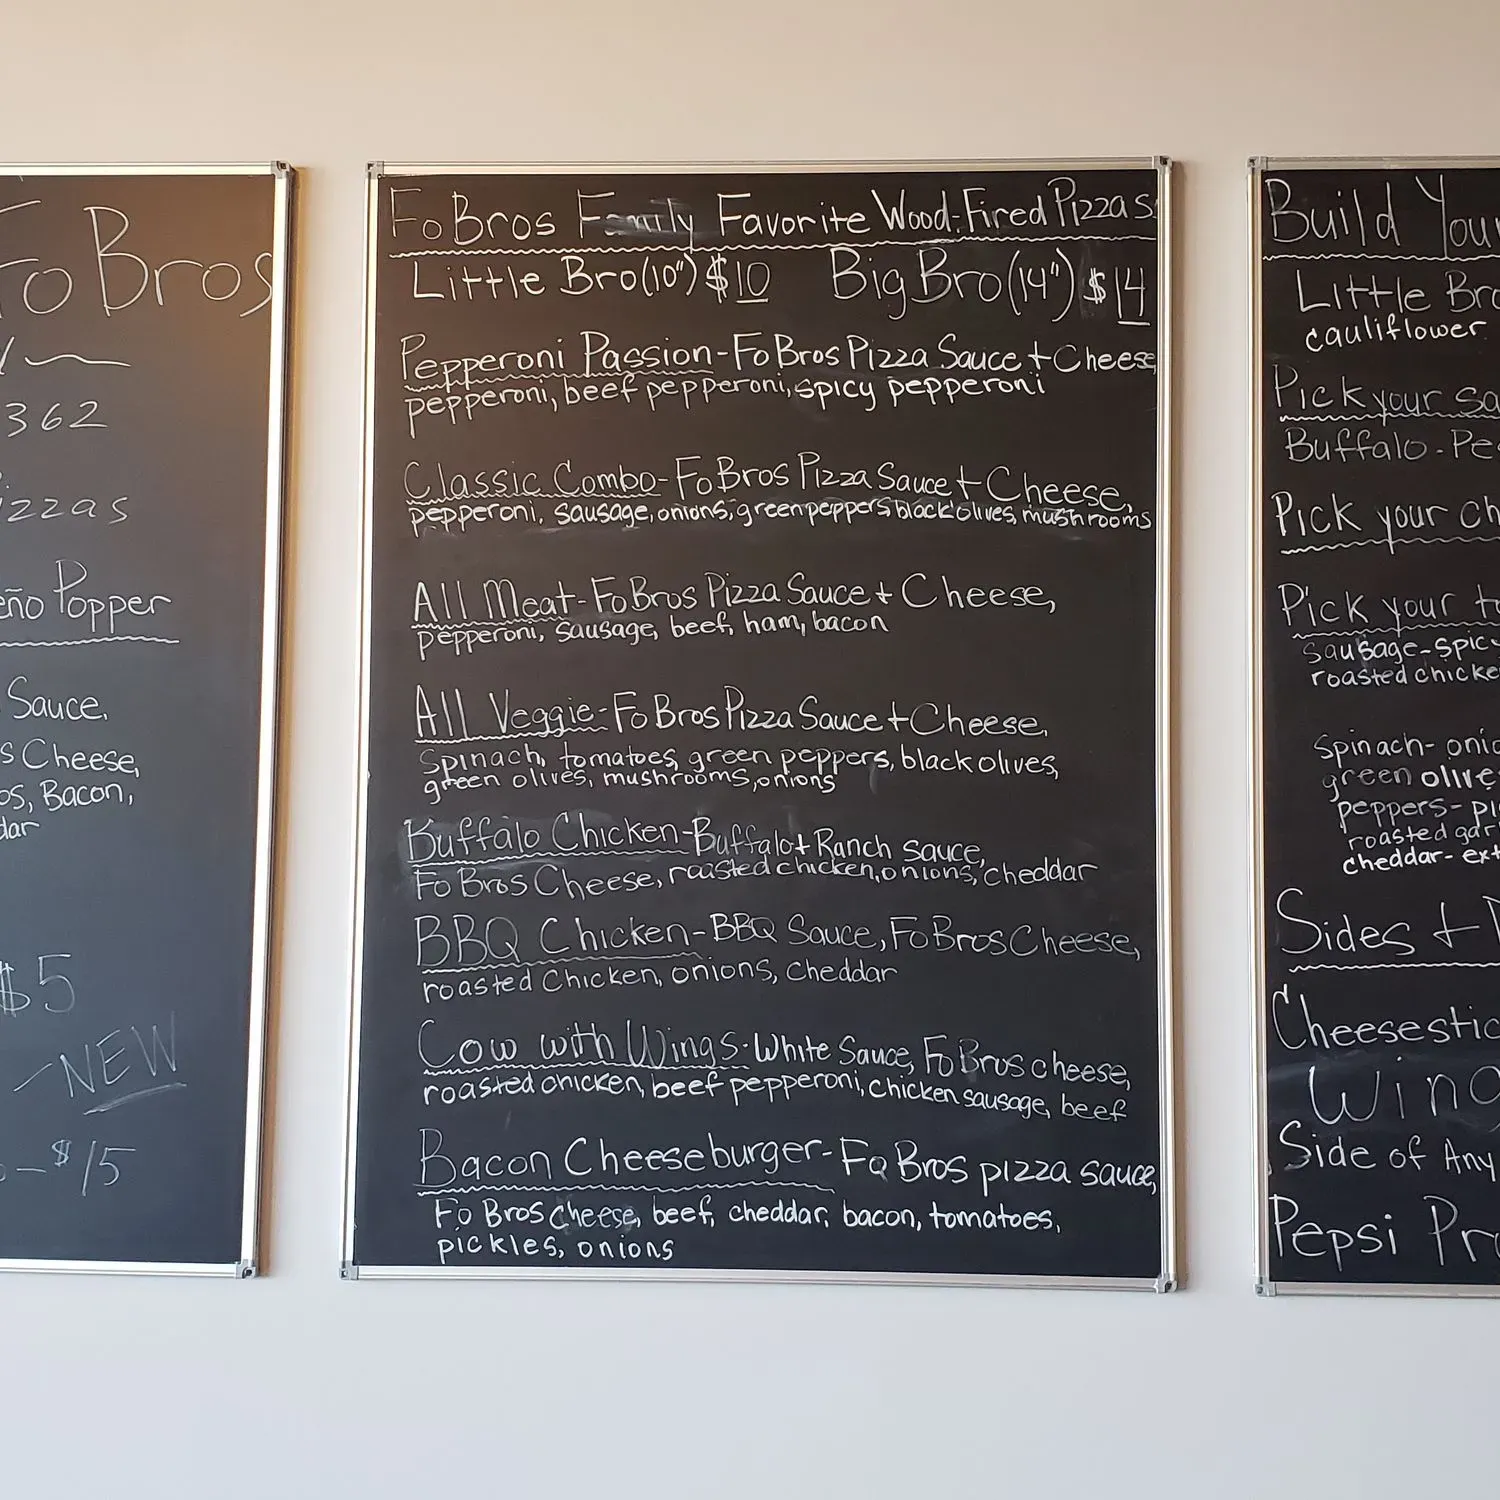 Fo Bros
362
izzas
eño Popper
Sauce,
s Cheese,
os, Bacon,
dar
$5
-NEW
-$15
Fo Bros Family Favorite Wood-Fired Pizzas
Little Bro(10") $10 Big Bro(14") $14
Pepperoni Passion-Fo Bros Pizza Sauce + Cheese
pepperoni, beef pepperoni, spicy pepperoni
Classic Combo-Fo Bros Pizza Sauce + Cheese,
pepperoni, sausage, onions, green peppers, black olives, mushrooms
All Meat-Fo Bros Pizza Sauce + Cheese,
pepperoni, sausage, beef, ham, bacon
All Veggie-Fo Bros Pizza Sauce + Cheese,
Spinach, tomatoes, green peppers, black olives,
green olives, mushrooms, onions
Buffalo Chicken-Buffalo + Ranch sauce,
Fo Bros Cheese, roasted chicken, onions, cheddar
BBQ Chicken-BBQ Sauce, Fo Bros Cheese,
roasted Chicken, onions, cheddar
Cow with Wings-White Sauce, Fo Bros cheese,
roasted chicken, beef pepperoni, chicken sausage, beef
Bacon Cheeseburger-Fo Bros pizza sauce,
Fo Bros cheese, beef, cheddar, bacon, tomatoes,
pickles, onions
Build Your
Little Bro
cauliflower
Pick your sa
Buffalo-Pe
Pick your ch
Pick your t
sausage-spic
roasted chicke
Spinach-onio
green olive
peppers-pi
roasted gar
cheddar-ext
Sides +
Cheesestic
Wing
Side of Any
Pepsi Pro